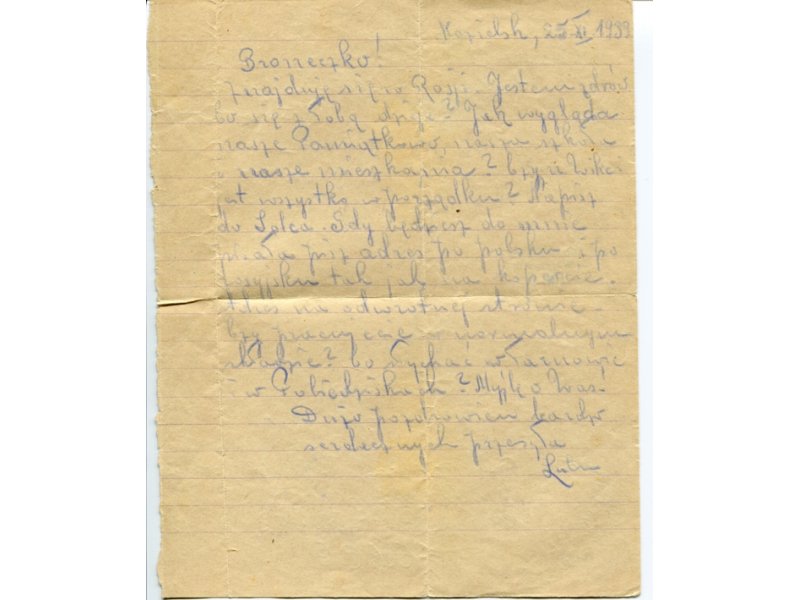 Kozielsk, 25 XI 1939
Broneczko!
znajduję się w Rosji. Jestem zdrów
Co się z Tobą dzieje? Jak wygląda
nasze Pamiątkowo, nasza szkoła
i nasze mieszkania? Czy u
jest wszystko w porządku? Napisz
do Solca. Gdy będziesz do mnie
pisała pisz adres po polsku i po
rosyjsku tak jak na kopercie.
Adres na odwrotnej stronie
Czy pracujecie w normalnym
składzie? Co słychać w Tarnowie
i w Pobiedziskach? Myślę o Was.
Dużo pozdrowień bardzo
serdecznych przesyła